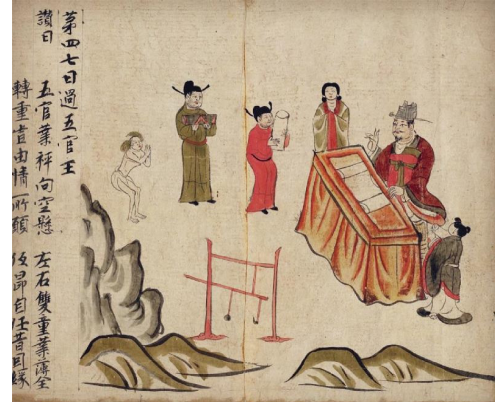 第四七日過五官王
讚曰 五官業秤向空懸 左右雙童業薄全
轉重豈由情所願 低昂自任昔因緣